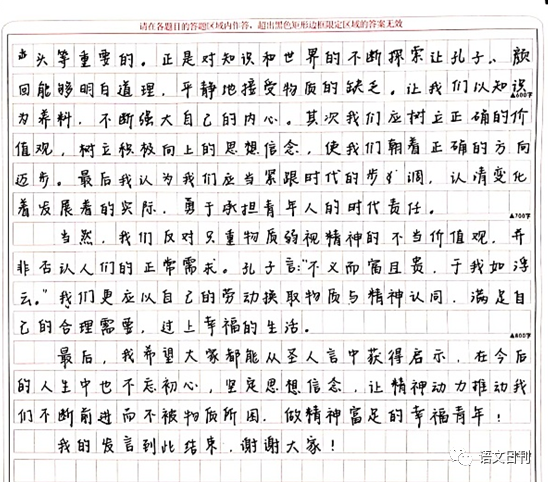 请在各题目的答题区域内作答，超出黑色矩形边框限定区域的答案无效
头等重要的。正是对知识和世界的不断探索让孔子、颜
回能够明白道理，平静地接受物质的缺乏。让我们以知识
▲600字
为养料，不断强大自己的内心。其次我们应树立正确的价
值观，树立积极向上的思想信念，使我们朝着正确的方向
迈步。最后我认为我们应当紧跟时代的步调，认清变化
着发展着的实际，勇于承担青年人的时代责任。
▲700字
当然，我们反对只重物质弱视精神的不当价值观，并
非否认人们的正常需求。孔子言:"不义而富且贵，于我如浮
云。"我们更应以自己的劳动换取物质与精神认同，满足自
己的合理需要，过上幸福的生活。
▲800字
最后，我希望大家都能从圣人言中获得启示，在今后
的人生中也不忘初心，坚定思想信念，让精神动力推动我
们不断前进而不被物质所困，做精神富足的幸福青年！
我的发言到此结束，谢谢大家！
语文日刊